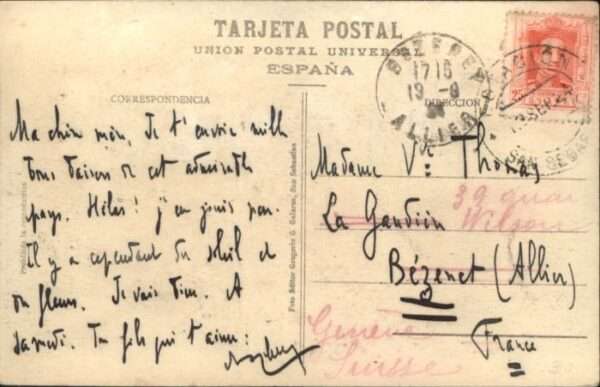 TARJETA POSTAL
UNION POSTAL UNIVERSAL
ESPAÑA
CORRESPONDENCIA
DIRECCION
BEZENET
1715
19-9
ALLIER
SAN SEBAS
Ma chère mère. Je t'envoie mille
bons baisers de cet admirable
pays. Hélas! j'en jouis peu.
Il y a cependant du soleil et
des fleurs. Je vais bien. A
samedi. Ton fils qui t'aime:
Madame Ve Thomas
39 quai
Wilson
La
Bézenet (Allier)
France
Genève
Suisse
Foto Editor Gregorio G. Galarza, San Sebastian